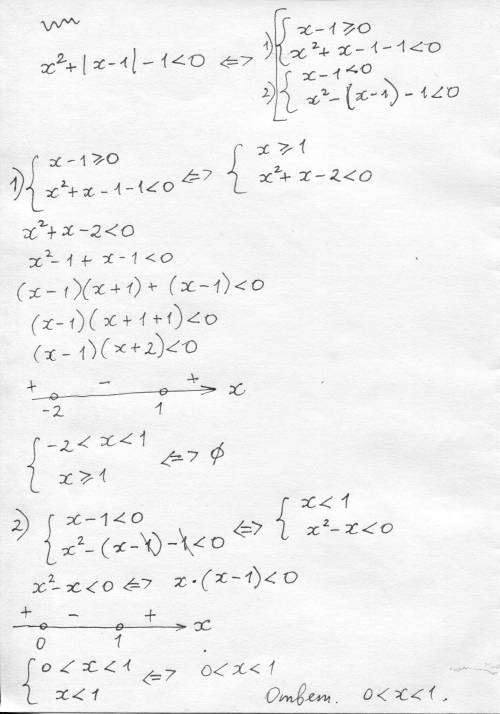 x²+|x-1|-1<0 <=> [ 1) { x-1≥0
x²+x-1-1<0
2) { x-1<0
x²-(x-1)-1<0
1) { x-1≥0
x²+x-1-1<0 <=> { x≥1
x²+x-2<0
x²+x-2<0
x²-1+x-1<0
(x-1)(x+1)+(x-1)<0
(x-1)(x+1+1)<0
(x-1)(x+2)<0
+ - + x
-2 1
{ -2<x<1
x≥1 <=> ∅
2) { x-1<0
x²-(x-1)-1<0 <=> { x<1
x²-x<0
x²-x<0 <=> x·(x-1)<0
+ - + x
0 1
{ 0<x<1
x<1 <=> 0<x<1
Ответ. 0<x<1.